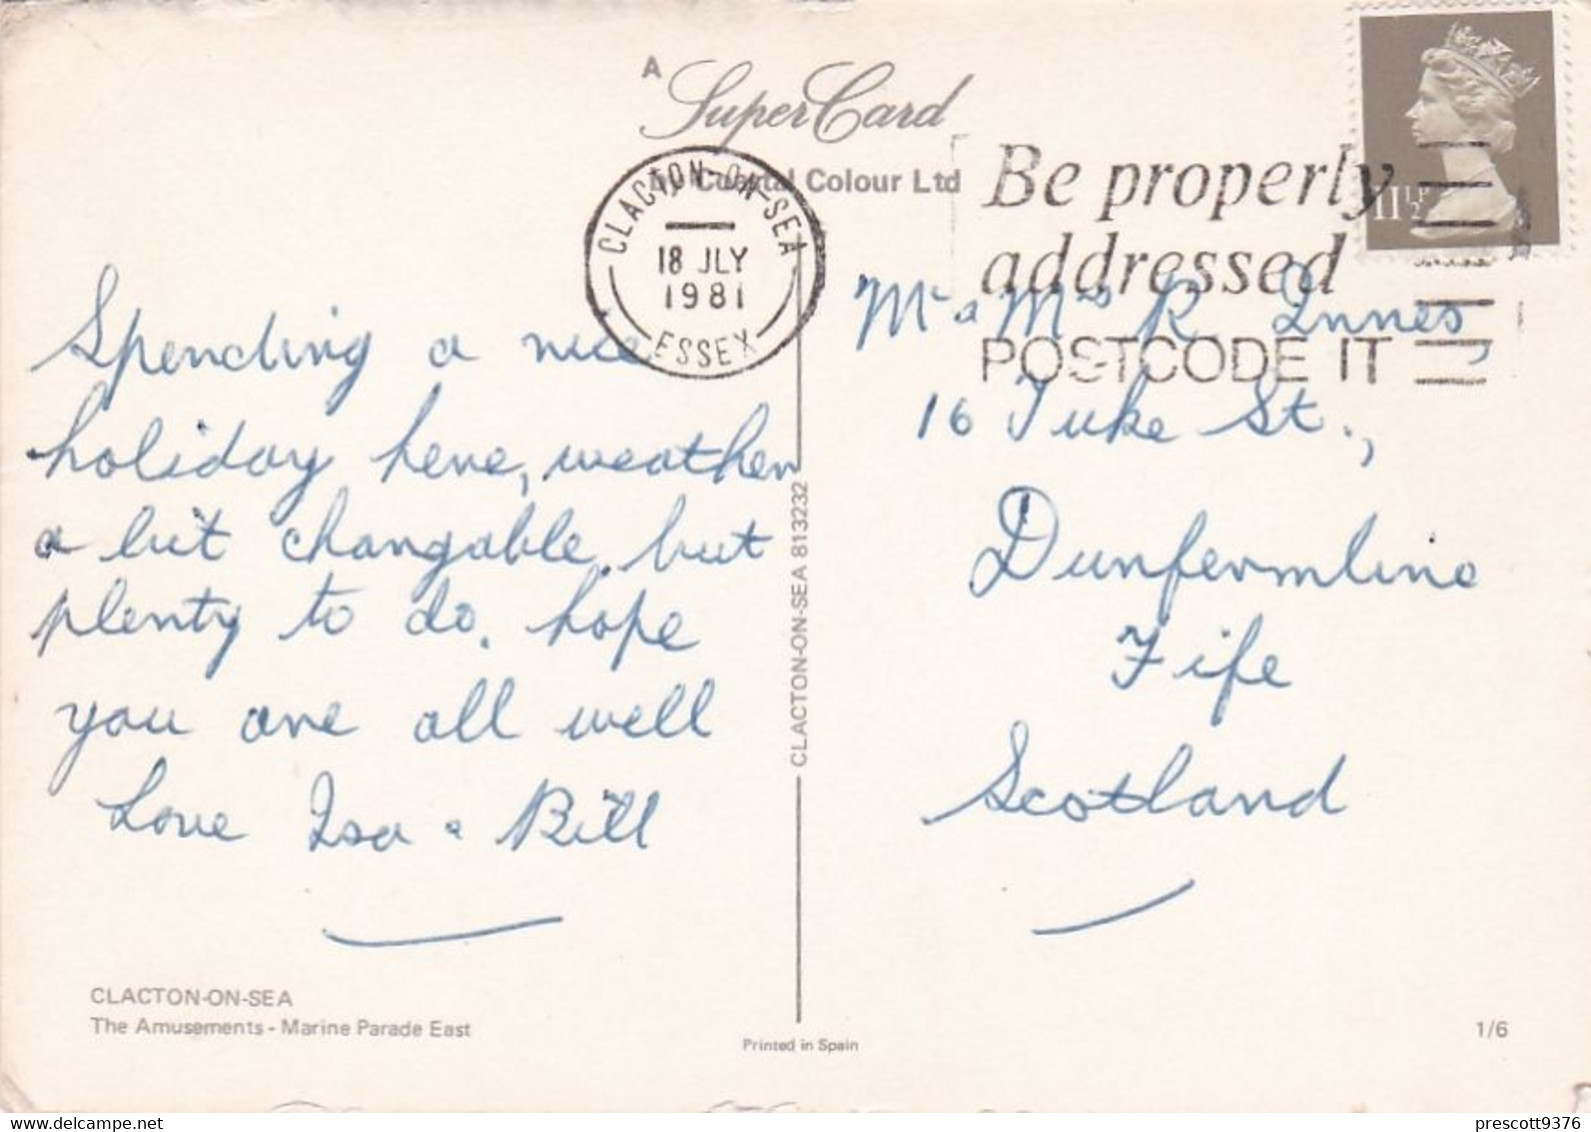 A
Super Card
by Coastal Colour Ltd
CLACTON-ON-SEA
18 JLY
1981
ESSEX
Be properly
addressed
POSTCODE IT
11½P
Spending a nice
holiday here, weather
a bit changable. but
plenty to do. hope
you are all well
Love Isa & Bill
Mr & Mrs R. Innes,
16 Tuke St.,
Dunfermline
Fife
Scotland
CLACTON-ON-SEA 813232
CLACTON-ON-SEA
The Amusements - Marine Parade East
Printed in Spain
1/6
prescott9376